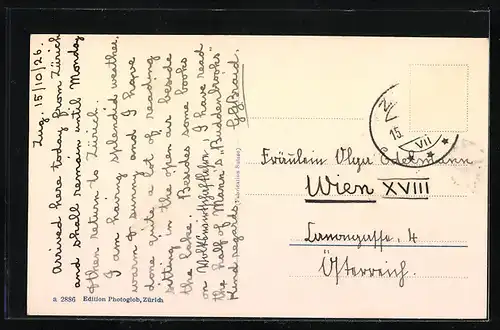 Zug. 15/10/26.
Arrived here today from Zürich
and shall remain until Monday
& then return to Zürich.
I am having splendid weather.
warm & sunny and I hope
done quite a lot of reading
sitting in the open air beside
the lake. Besides some books
on Volkswirtschaftslehre, I have read
the half of Mann's "Buddenbrooks"
Kind regards.
Fräulein Olga Edelmann
Wien XVIII
Canongasse. 4
Österreich.
15.
VII
a 2886 Edition Photoglob, Zürich